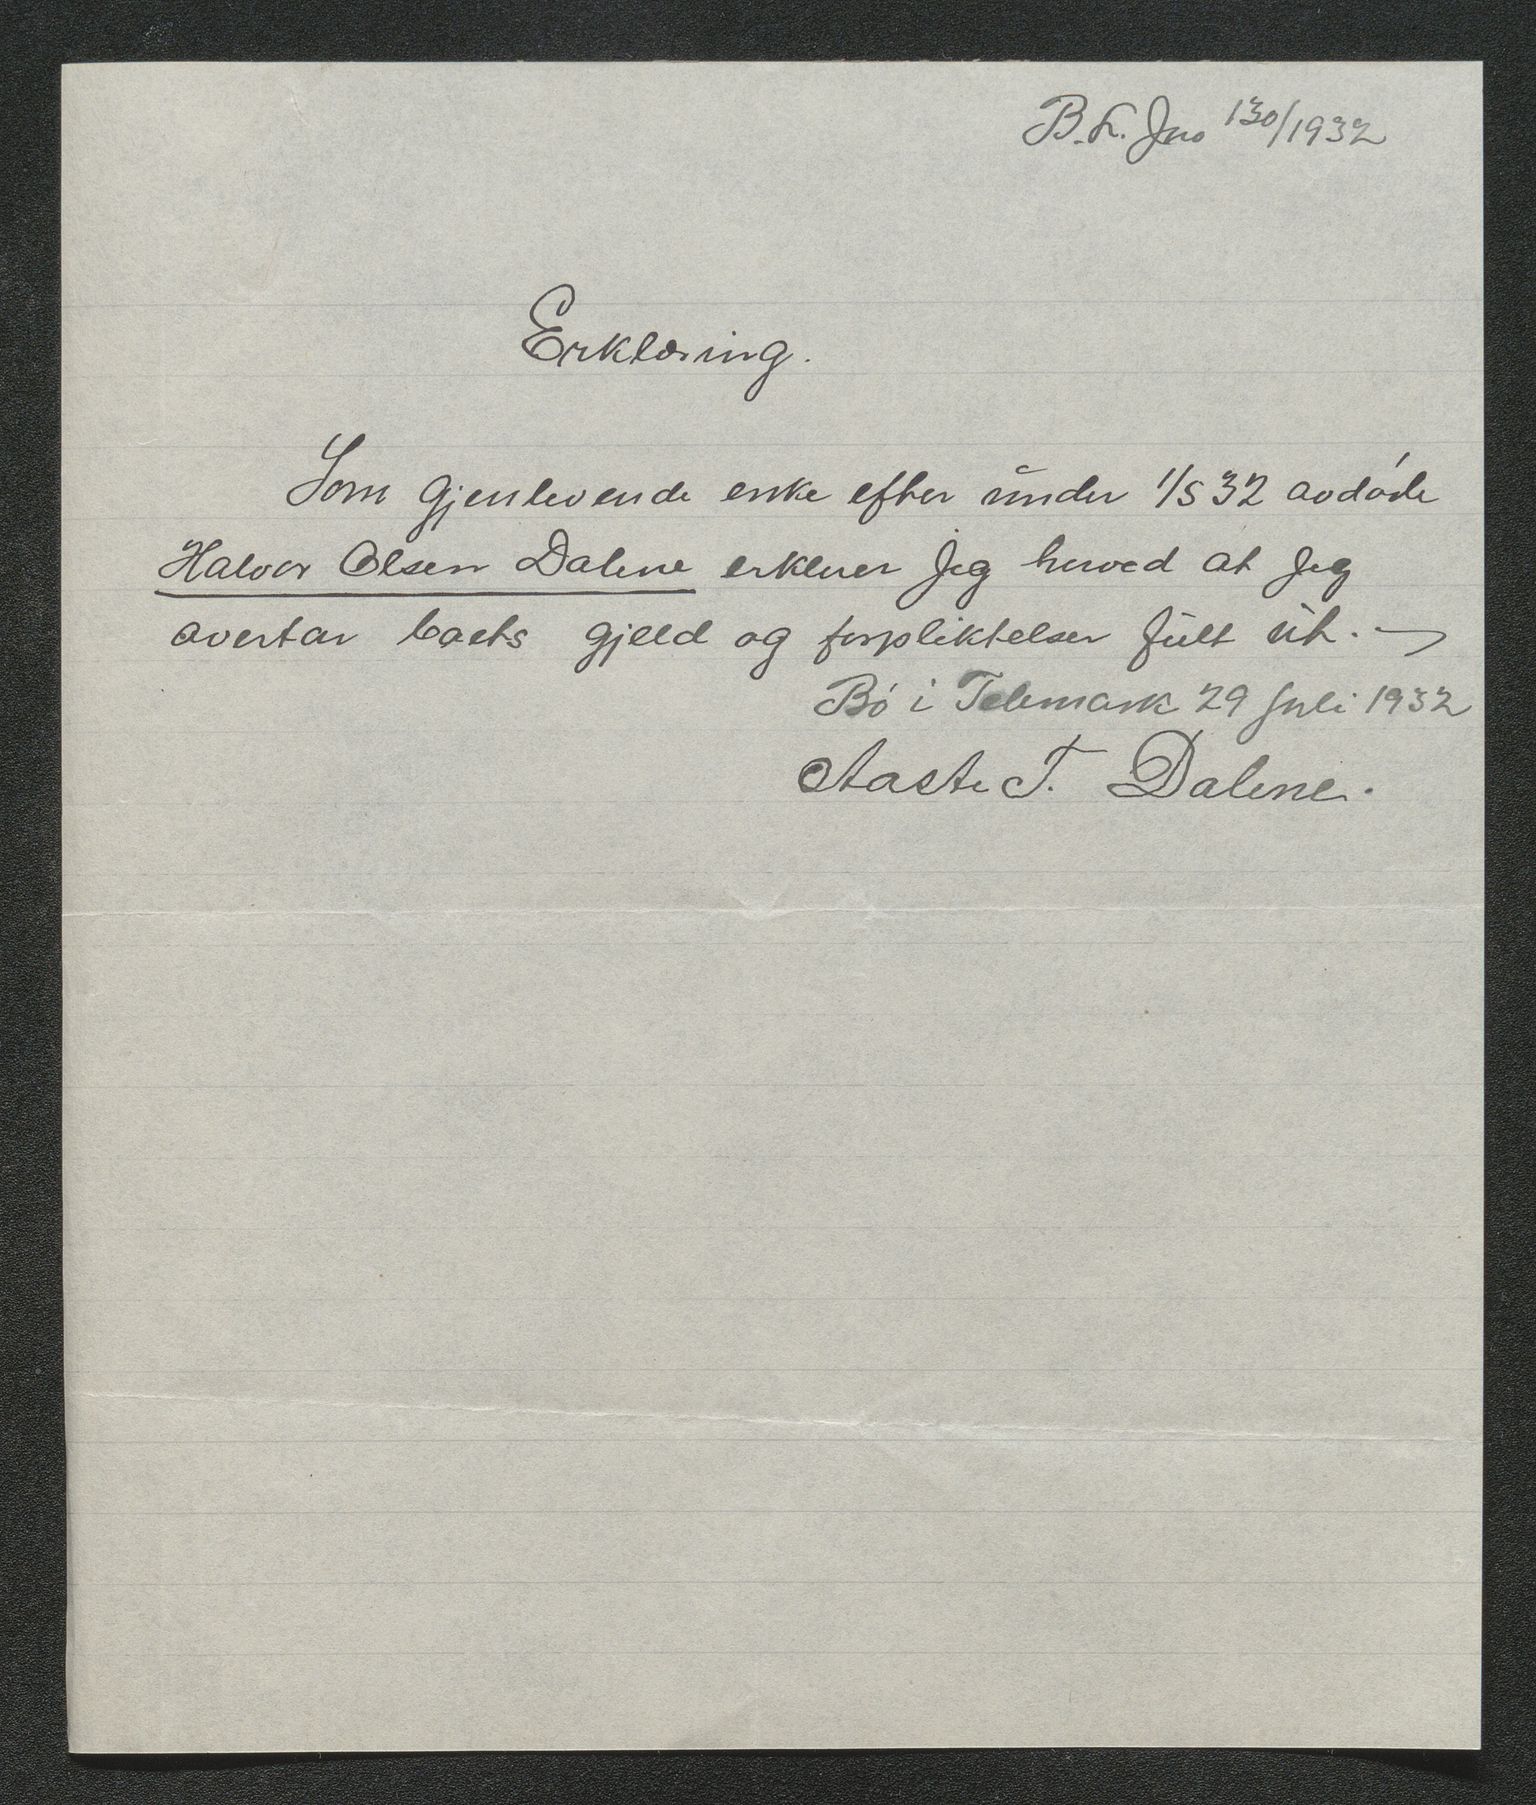 B.L. Jno 130/1932
Erklæring.
Som gjenlevende enke efter under 1/5 32 avdøde
Halvor Olsen Dalene erklerer jeg herved at jeg
overtar boets gjeld og forpliktelser fullt ut.
Bø i Telemark 29 juli 1932
Aaste T. Dalene.